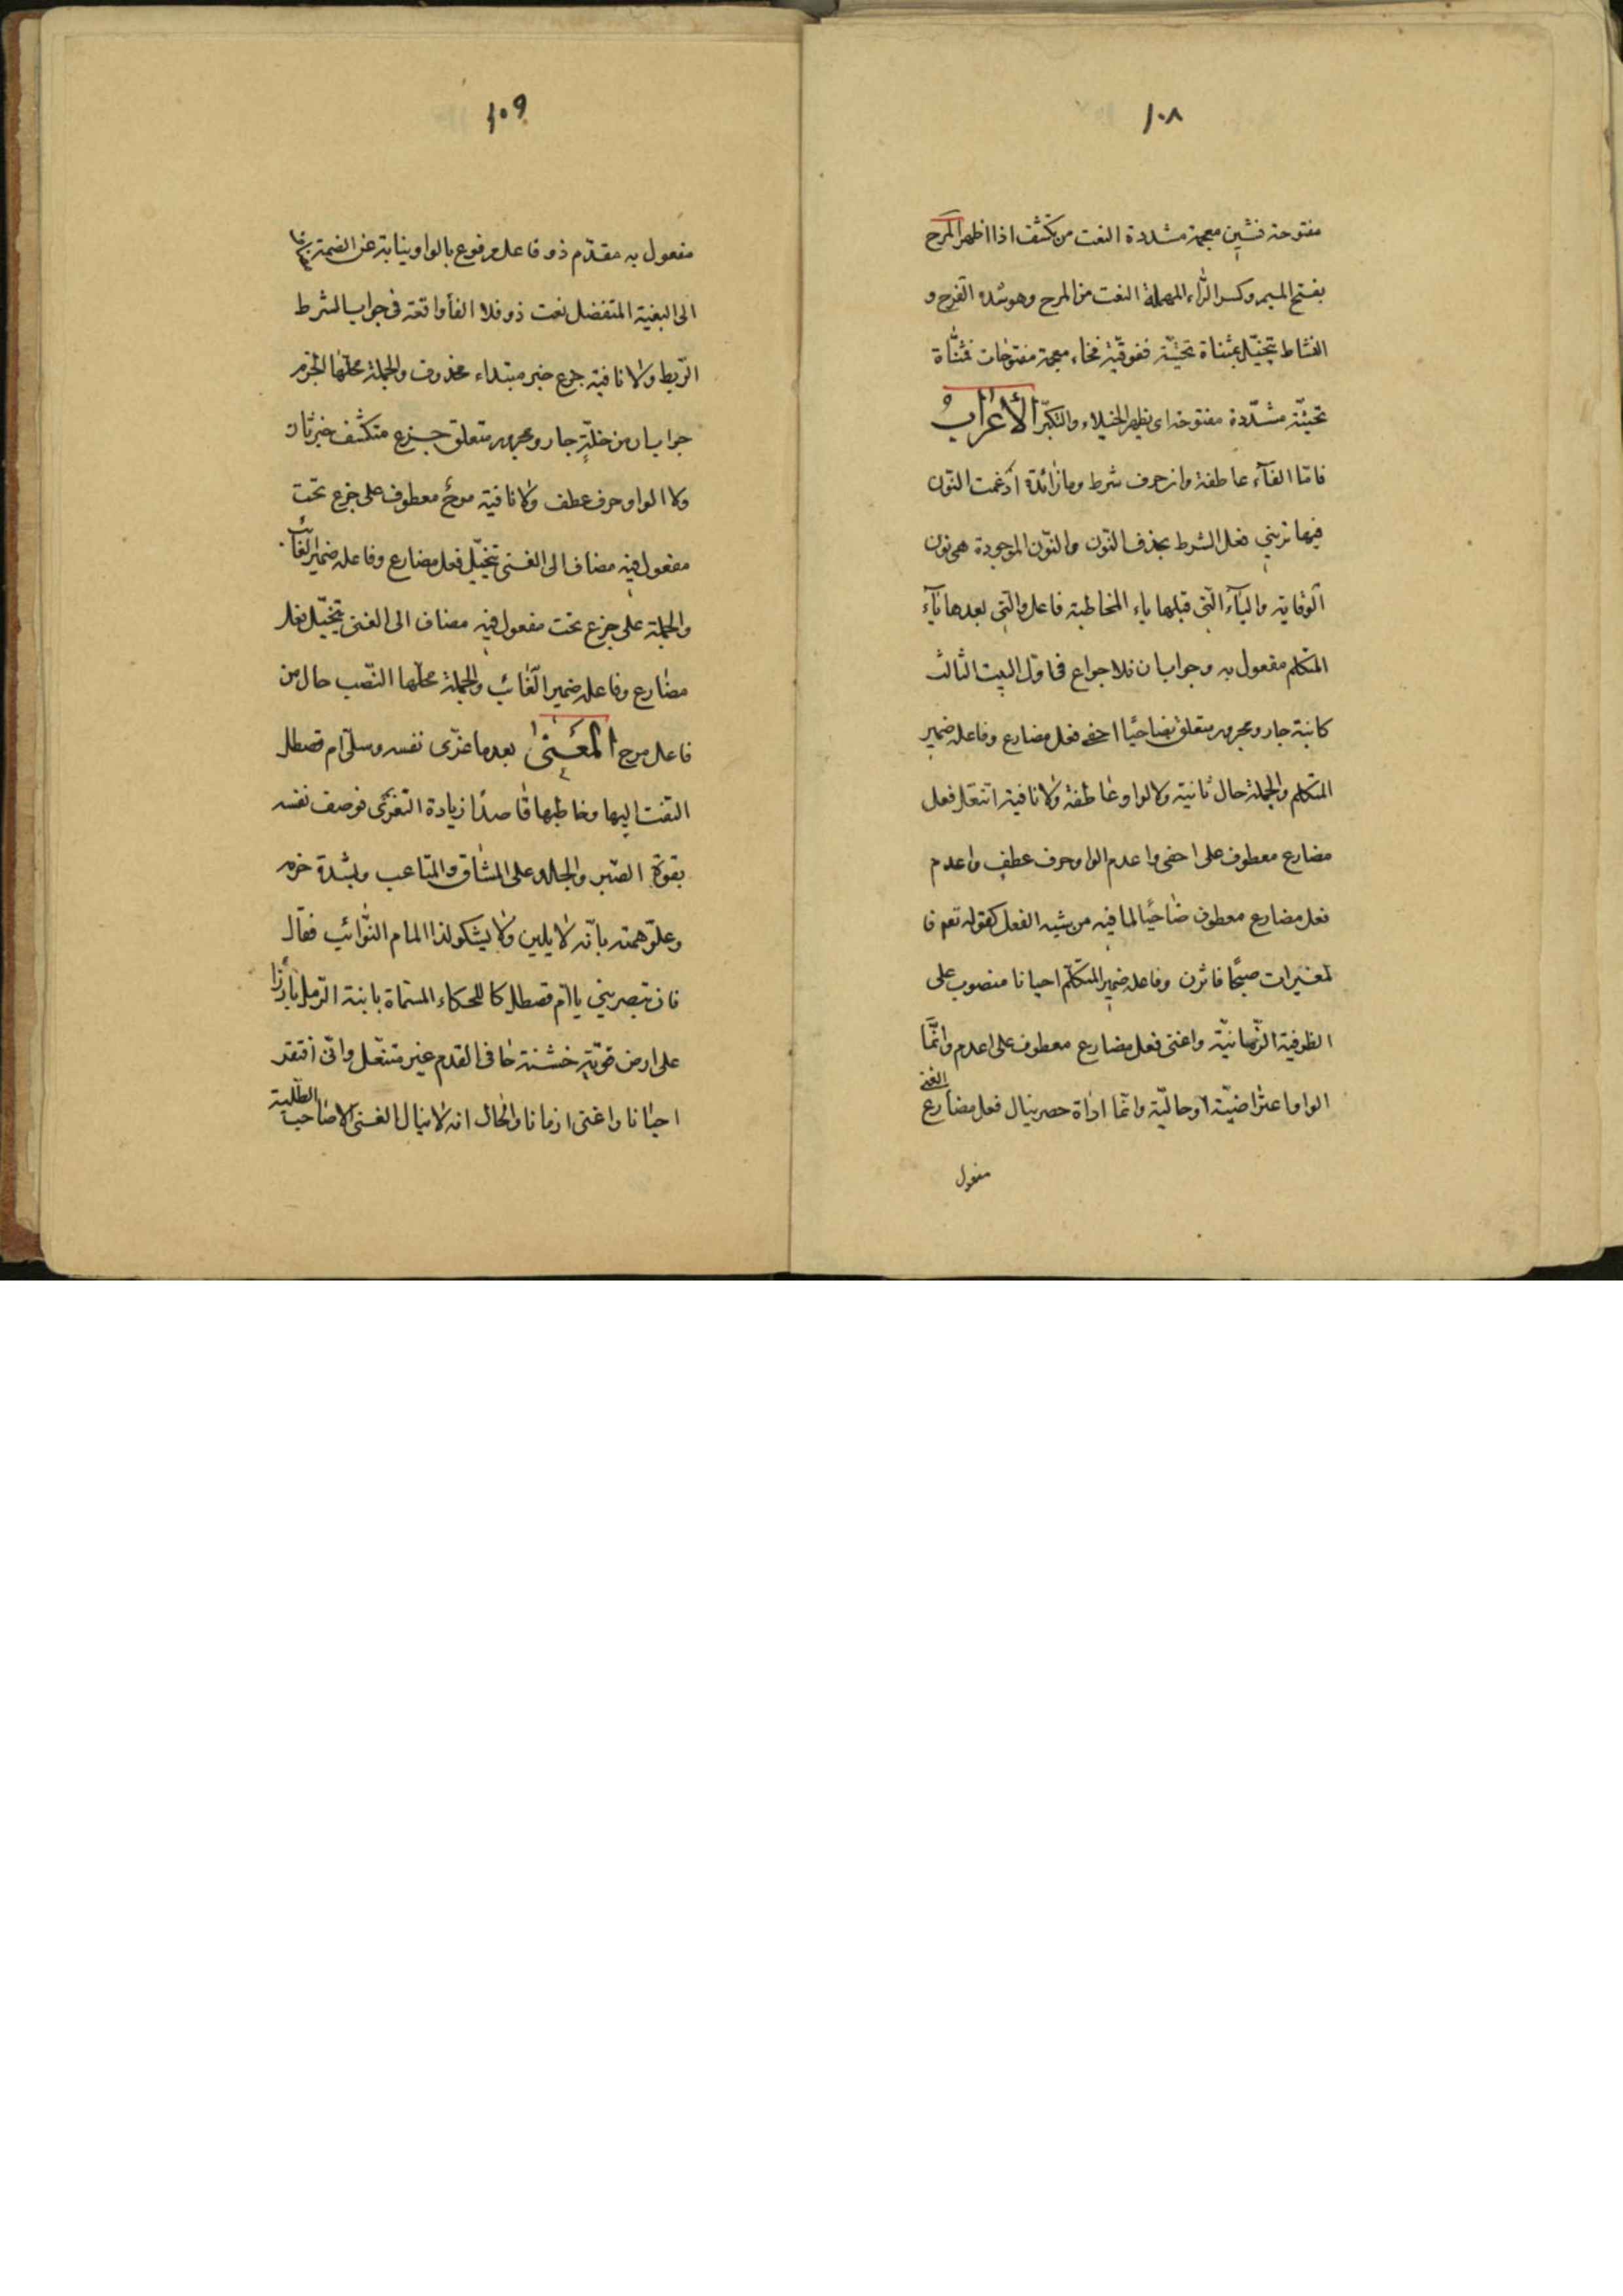 ١٠٨
مفتوحة فشين معجمة مشددة النعت من تكشف اذا اظهر المرح
بفتح الميم وكسر الرّاء المهملة النعت من المرح وهو شده الفرح و
النشاط يتخيّل بمثناة تحتيّة ففوقيّة فخاء معجمة مفتوحات فمثنّاة
تحتيّة مشدّدة مفتوحة اى يظهر الخيلاء والتكبّر الأعراب
فامّا الفآء عاطفة وان حرف شرط وما زائدة ادغمت النّون
فيها تريني فعل الشرط بحذف النّون والنّون الموجودة هى نون
الوقاية واليآء الّتى قبلها ياء المخاطبة فاعل والّتى بعدها يآء
المتكلم مفعول به وجوابان فلا جزاع فى اوّل البيت الثالث
كابنة جار ومجرور متعلق بضاحيًا احفى فعل مضارع وفاعله ضمير
المتكلم والجملة حال ثانية ولا الواو عاطفة ولا نافية اتنعّل فعل
مضارع معطوف على احفى واعدم الواو حرف عطف واعدم
فعل مضارع معطوف ضاحيًا لما فيه من شبه الفعل كقوله تعم فا
لمغيرات صبحًا فاثرن وفاعله ضمير المتكلّم احيانا منصوب على
الظرفية الزّمانيّة واغنى فعل مضارع معطوف على اعدم وانّما
الواو اعتراضيّة او حاليّة وانّما اداة حصر ينال فعل مضارع الغنى
مفعول
١٠٩
مفعول به مقدّم ذو فاعل مرفوع بالواو نيابة عن الضمة
الى البغية المتفضل نعت ذو فلا الفأ واقعة فى جواب الشرط
الرّبط ولا نافية جزع خبر مبتداء محذوف والجملة محلّها الجزم
جوابان من خلّةٍ جار ومجرور متعلق بجزع متكشف خبر ثان
ولا الواو حرف عطف ولا نافية مرح معطوف على جزع تحت
مفعول فيه مضاف الى الغنى يتخيّل فعل مضارع وفاعله ضمير الغائب
والجملة على جزع تحت مفعول فيه مضاف الى الغنى يتخيّل فعل
مضارع وفاعله ضمير الغائب والجملة محلّها النّصب حال من
فاعل مرح المعنى بعدما عزّى نفسه وسلّى ام قصطل
التفت اليها وخاطبها قاصدًا زيادة التعزّى فوصف نفسه
بقوّة الصّبر والجلد على المشاق والمتاعب وبشدة حزم
وعلوّ همته بانّه لا يلين ولا يشكو لذا المام النّوائب فقال
فان تبصريني يا امّ قصطل كالحكاء المسمّاة بابنة الرّمل بارزا
على ارض خشنة حافى القدم غير متنعّل وانّى افتقر
احيانا واغنى ازمانا والحال انه لا ينال الغنى الا صاحب الطّلبة